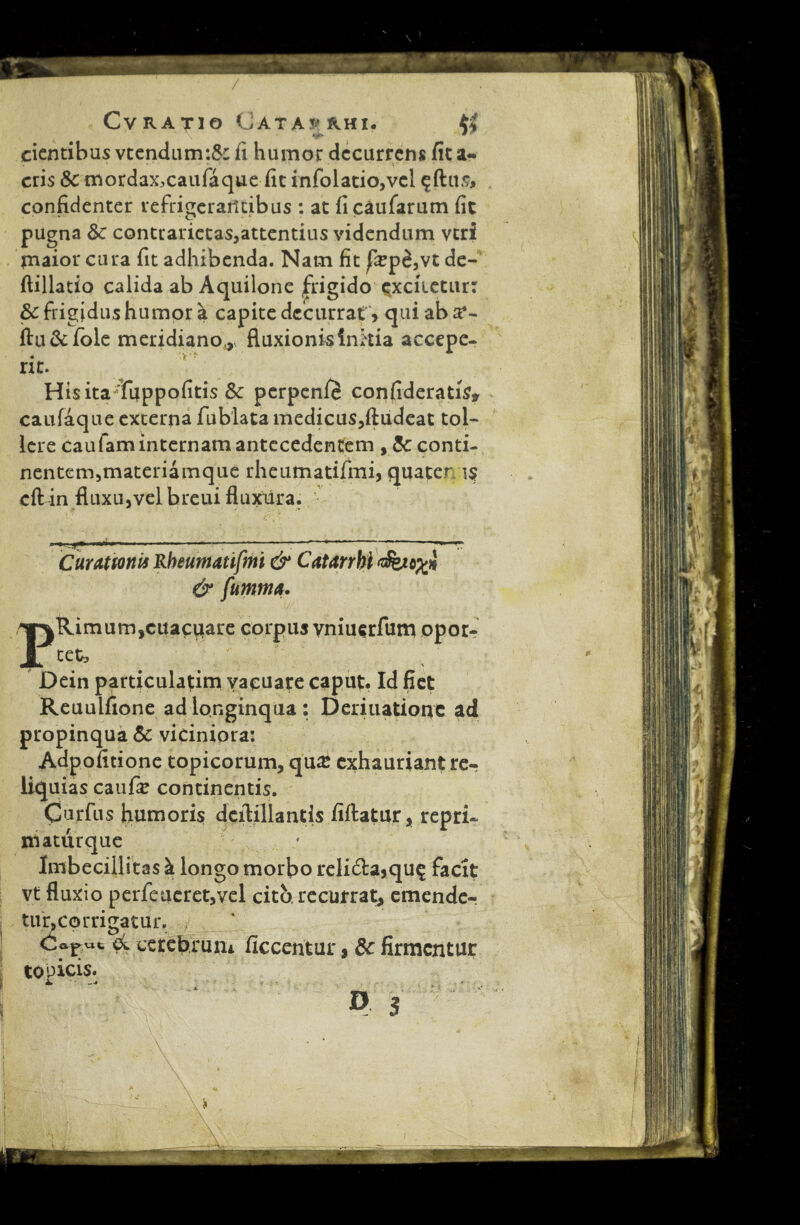 CVRATIO CATARRHI.
cientibus vtendum:& ſi humor decurrens ſit a-
cris & mordax,cauſáque ſit inſolatio,vel ęſtus,
confidenter refrigerantibus : at ſi cauſarum ſit
pugna & contrarietas,attentius videndum vtri
maior cura ſit adhibenda. Nam fit ſæpè,vt de-
ſtillatio calida ab Aquilone frigido excitetur:
& frigidus humor à capite decurrat, qui ab æ-
ſtu & ſole meridiano, fluxionis initia accepe-
rit.
His ita ſuppoſitis & perpenſè conſideratis,
cauſáque externa ſublata medicus,ſtudeat tol-
lere cauſam internam antecedentem , & conti-
nentem,materiámque rheumatiſmi, quaten is
eſt in fluxu,vel breui fluxura.
Curationis Rheumatiſmi & Catarrhi
& ſumma.
PRimum,euacuare corpus vniuerſum opor-
tet,
Dein particulatim vacuare caput. Id fiet
Reuulſione ad longinqua : Deriuatione ad
propinqua & viciniora:
Adpoſitione topicorum, quæ exhauriant re-
liquias cauſæ continentis.
Curſus humoris deſtillantis ſiſtatur, repri-
matúrque
Imbecillitas à longo morbo relicta,quę facit
vt fluxio perſeueret,vel citò recurrat, emende-
tur,corrigatur.
Caput & cerebrum ſiccentur, & firmentur
topicis.
D 3